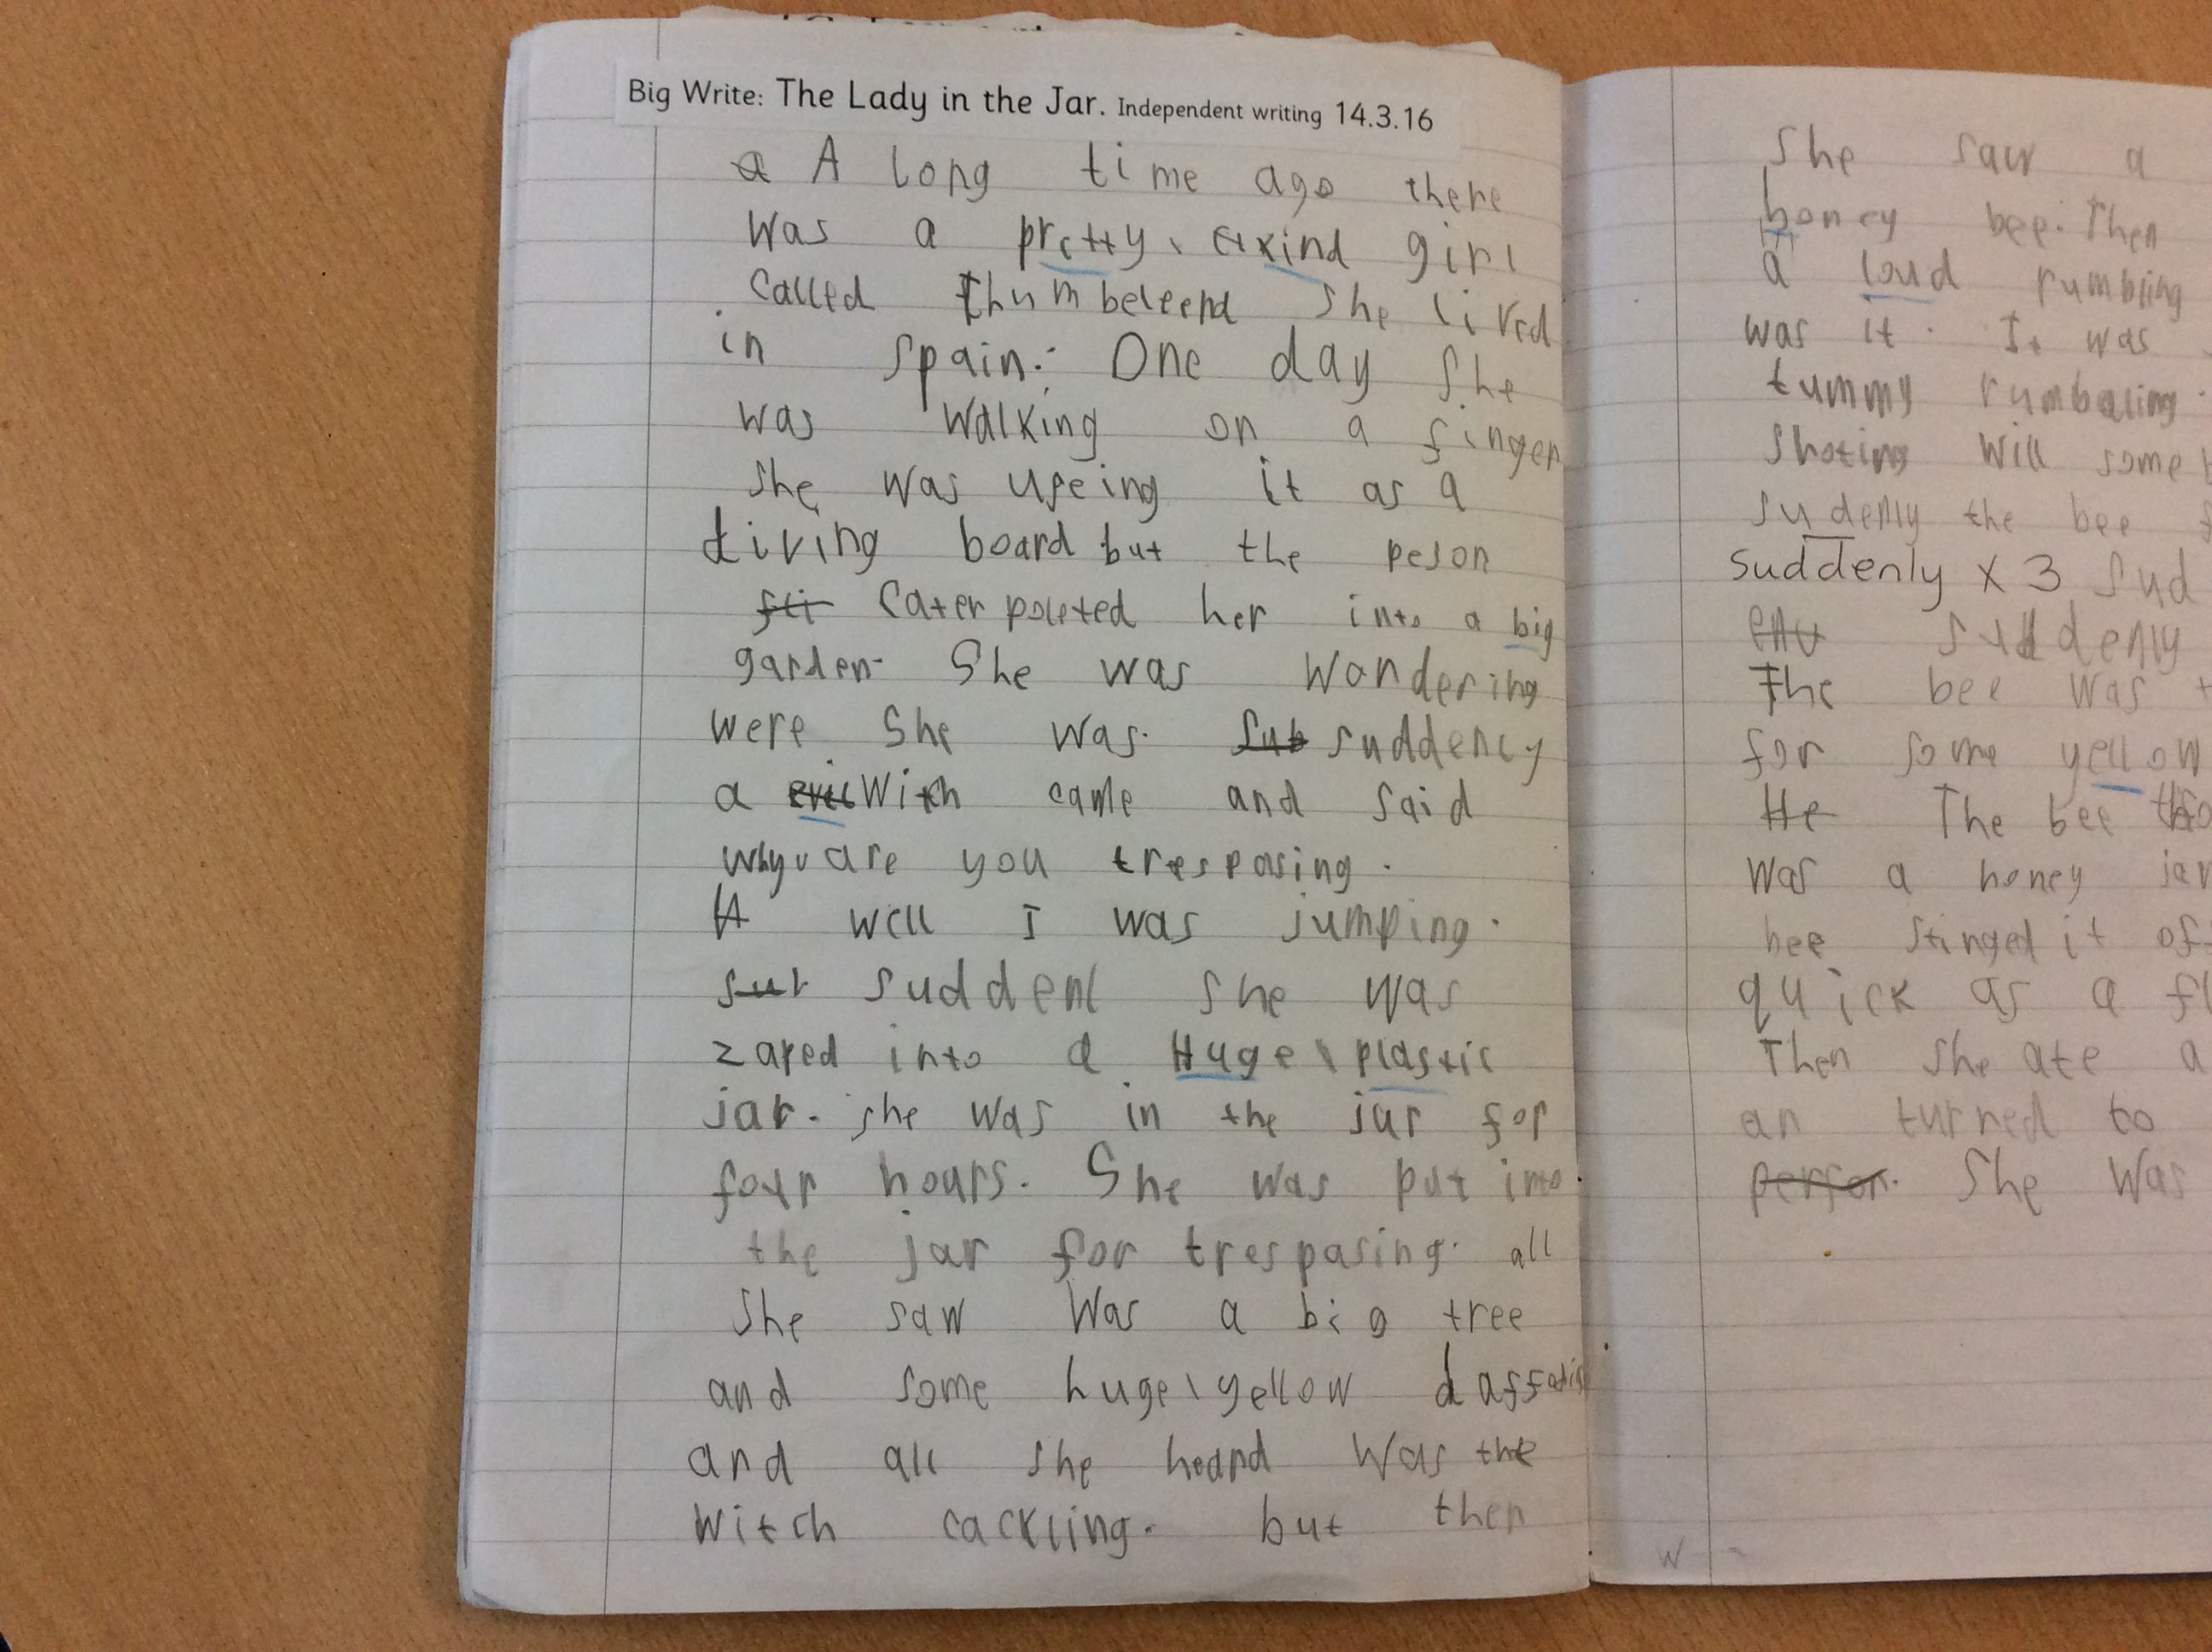 Big Write: The Lady in the Jar. Independent writing 14.3.16
a A long time ago there
was a pretty, kind girl
called Thumbeleena she lived
in spain. One day she
was walking on a finger
she was useing it as a
diving board but the peson
fli Caterpoleted her into a big
garden. She was wondering
were she was. Sub suddenly
a evil witch came and said
why are you trespasing.
A well I was jumping.
sub suddenl she was
zaped into a Huge, plastic
jar. she was in the jar for
four hours. She was put into
the jar for trespasing. all
she saw was a big tree
and some huge, yellow
and all she heard was the
witch cackling. but then
She saw a
honey bee. Then
a loud rumbling
was it. It was
tummy rumbaling.
Shoting will some
sudenly the bee
suddenly x 3 sud
suddenly
The bee was
for some yellow
He The bee
was a honey jar
bee stinged it of
quick as a fl
Then she ate a
an turned to
person. She was